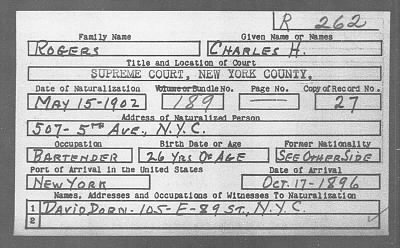 R 262
Family Name Given Name or Names
ROGERS CHARLES H.
Title and Location of Court
SUPREME COURT, NEW YORK COUNTY.
Date of Naturalization Volume or Bundle No. Page No. Copy of Record No.
MAY 15-1902 189 — 27
Address of Naturalized Person
507-5TH AVE., N.Y.C.
Occupation Birth Date or Age Former Nationality
BARTENDER 26 YRS OF AGE SEE OTHER SIDE
Port of Arrival in the United States Date of Arrival
NEW YORK OCT. 17-1896
Names, Addresses and Occupations of Witnesses To Naturalization
1 DAVID DORN-105-E-89 ST., N.Y.C.
2